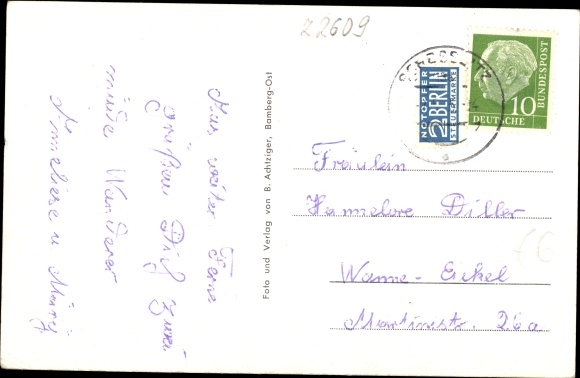 Z2609
Aus weiter Ferne
grüßen Dich zwei
müde Wanderer
Anneliese u.
Foto und Verlag von B. Achtziger, Bamberg-Ost
NOTOPFER
2 BERLIN
STEUERMARKE
10
DEUTSCHE
BUNDESPOST
Fräulein
Hannelore Diller
Wanne-Eickel
Martinstr. 26a